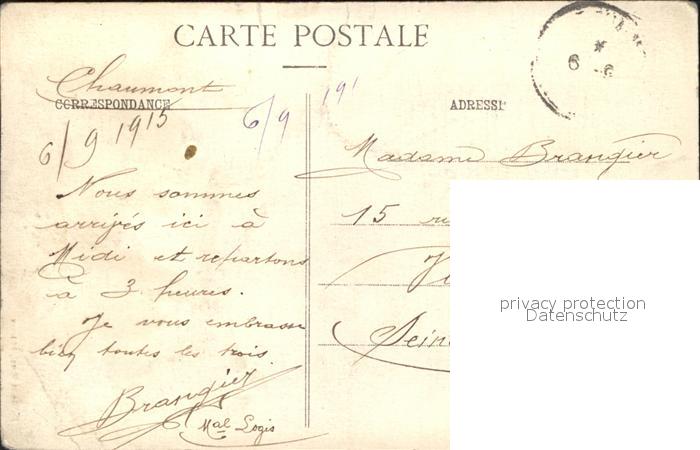 CARTE POSTALE
Chaumont
CORRESPONDANCE
ADRESSE
6/9 1915
6/9 191
6 9
Madame Brangier
15 ru
Nous sommes
arrivés ici à
Midi et repartons
à 3 heures.
Je vous embrasse
bien toutes les trois.
Brangier
Mal Logis
Vi
Seine
privacy protection
Datenschutz